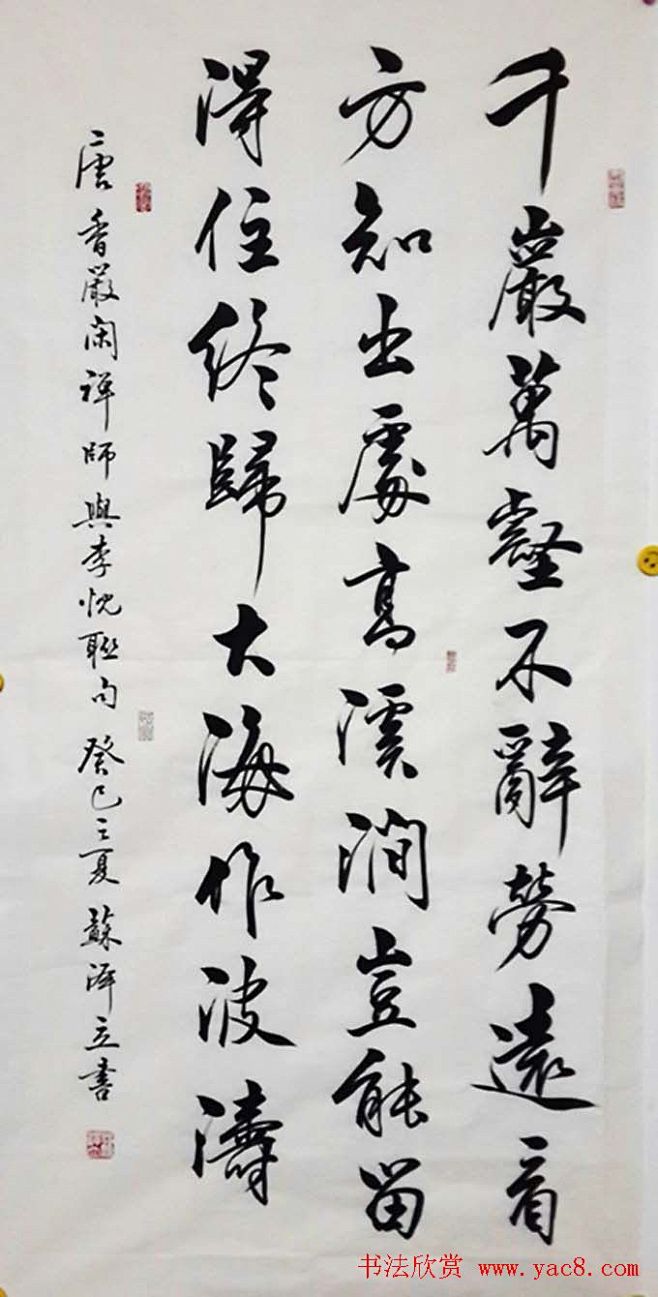 千巖萬壑不辭勞遠看
方知出處高溪澗豈能留
得住終歸大海作波濤
唐香嚴閑禪師與李忱聯句 癸巳之夏 蘇澤立書
书法欣赏 www.yac8.com